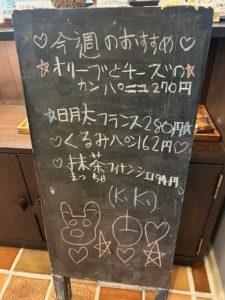 ♡今週のおすすめ♡
☆オリーブとチーズの
カンパーニュ270円
☆明太フランス280円
♡くるみパン162円
☆抹茶フィナンシェ194円
まっちゃ
(KiKi)